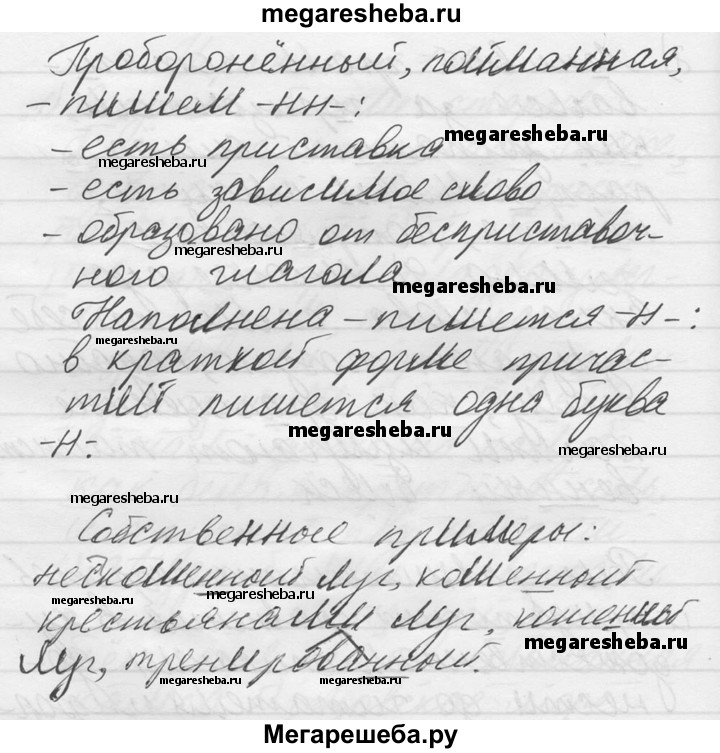 megaresheba.ru
Проборонённый, пойманная,
- пишем -нн-:
megaresheba.ru
- есть приставка
megaresheba.ru
- есть зависимое слово
- образовано от бесприставоч-
megaresheba.ru
ного глагола
megaresheba.ru
Наполнена - пишется -н-:
в краткой форме причас-
тий пишется одна буква
megaresheba.ru
-н-.
megaresheba.ru
megaresheba.ru
Собственные примеры:
нескошенный луг, кошенный
megaresheba.ru
megaresheba.ru
крестьянами луг, кошенный
megaresheba.ru
луг, тренированный.
megaresheba.ru
Мегарешеба.ру